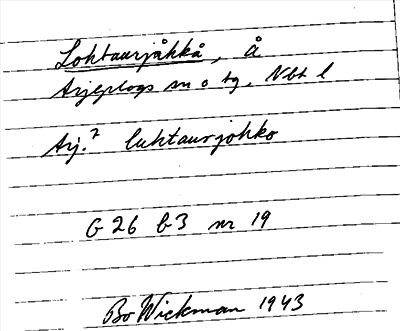 Lohtaurjåhkå, å
Arjeplogs sn o tg, Nbt l
Arj.? luhtaurjohko
G 26 b3 nr 19
Bo Wickman 1943